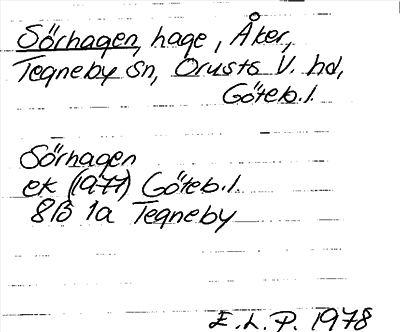 Sörhagen, hage, Åker,
Tegneby sn, Orusts V. hd,
Göteb.l.
Sörhagen
ek (1977) Göteb.l.
8B 1a Tegneby
E.L.P. 1978